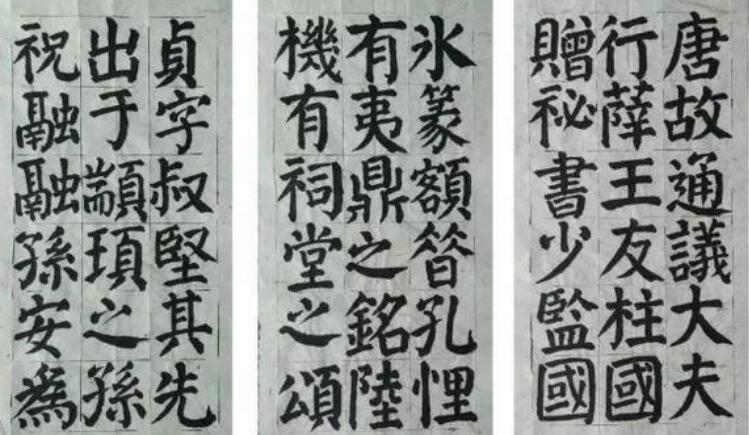 唐故通議大夫
行薛王友柱國
贈祕書少監國
氷篆額昔孔悝
有夷鼎之銘陸
機有祠堂之頌
貞字叔堅其先
出于顓頊之孫
祝融融孫安為